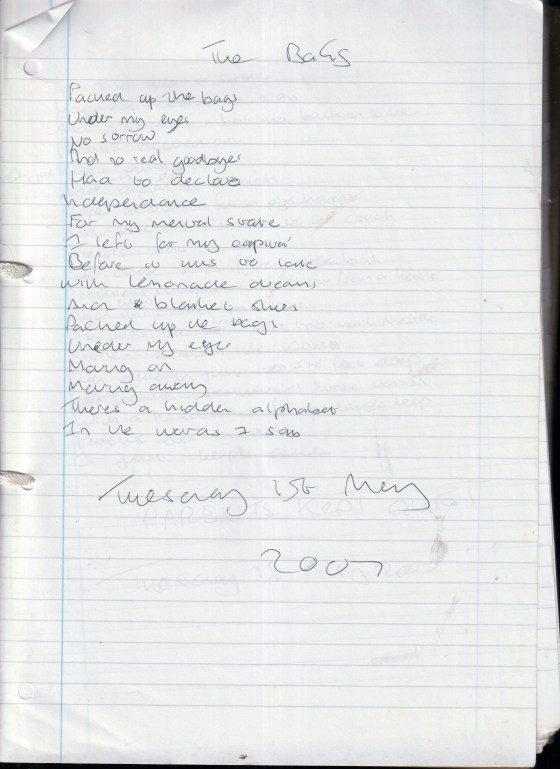 The BaGs
Packed up the bags
Under my eyes
No sorrow
And no real goodbyes
Had to declare
Independance
For my mental state
I left for my capital
Before it was too late
With lemonade dreams
And blanket skies
Packed up the bags
Under my eyes
Moving on
Moving away
Theres a hidden alphabet
In the words I say
Tuesday 15t May
2007